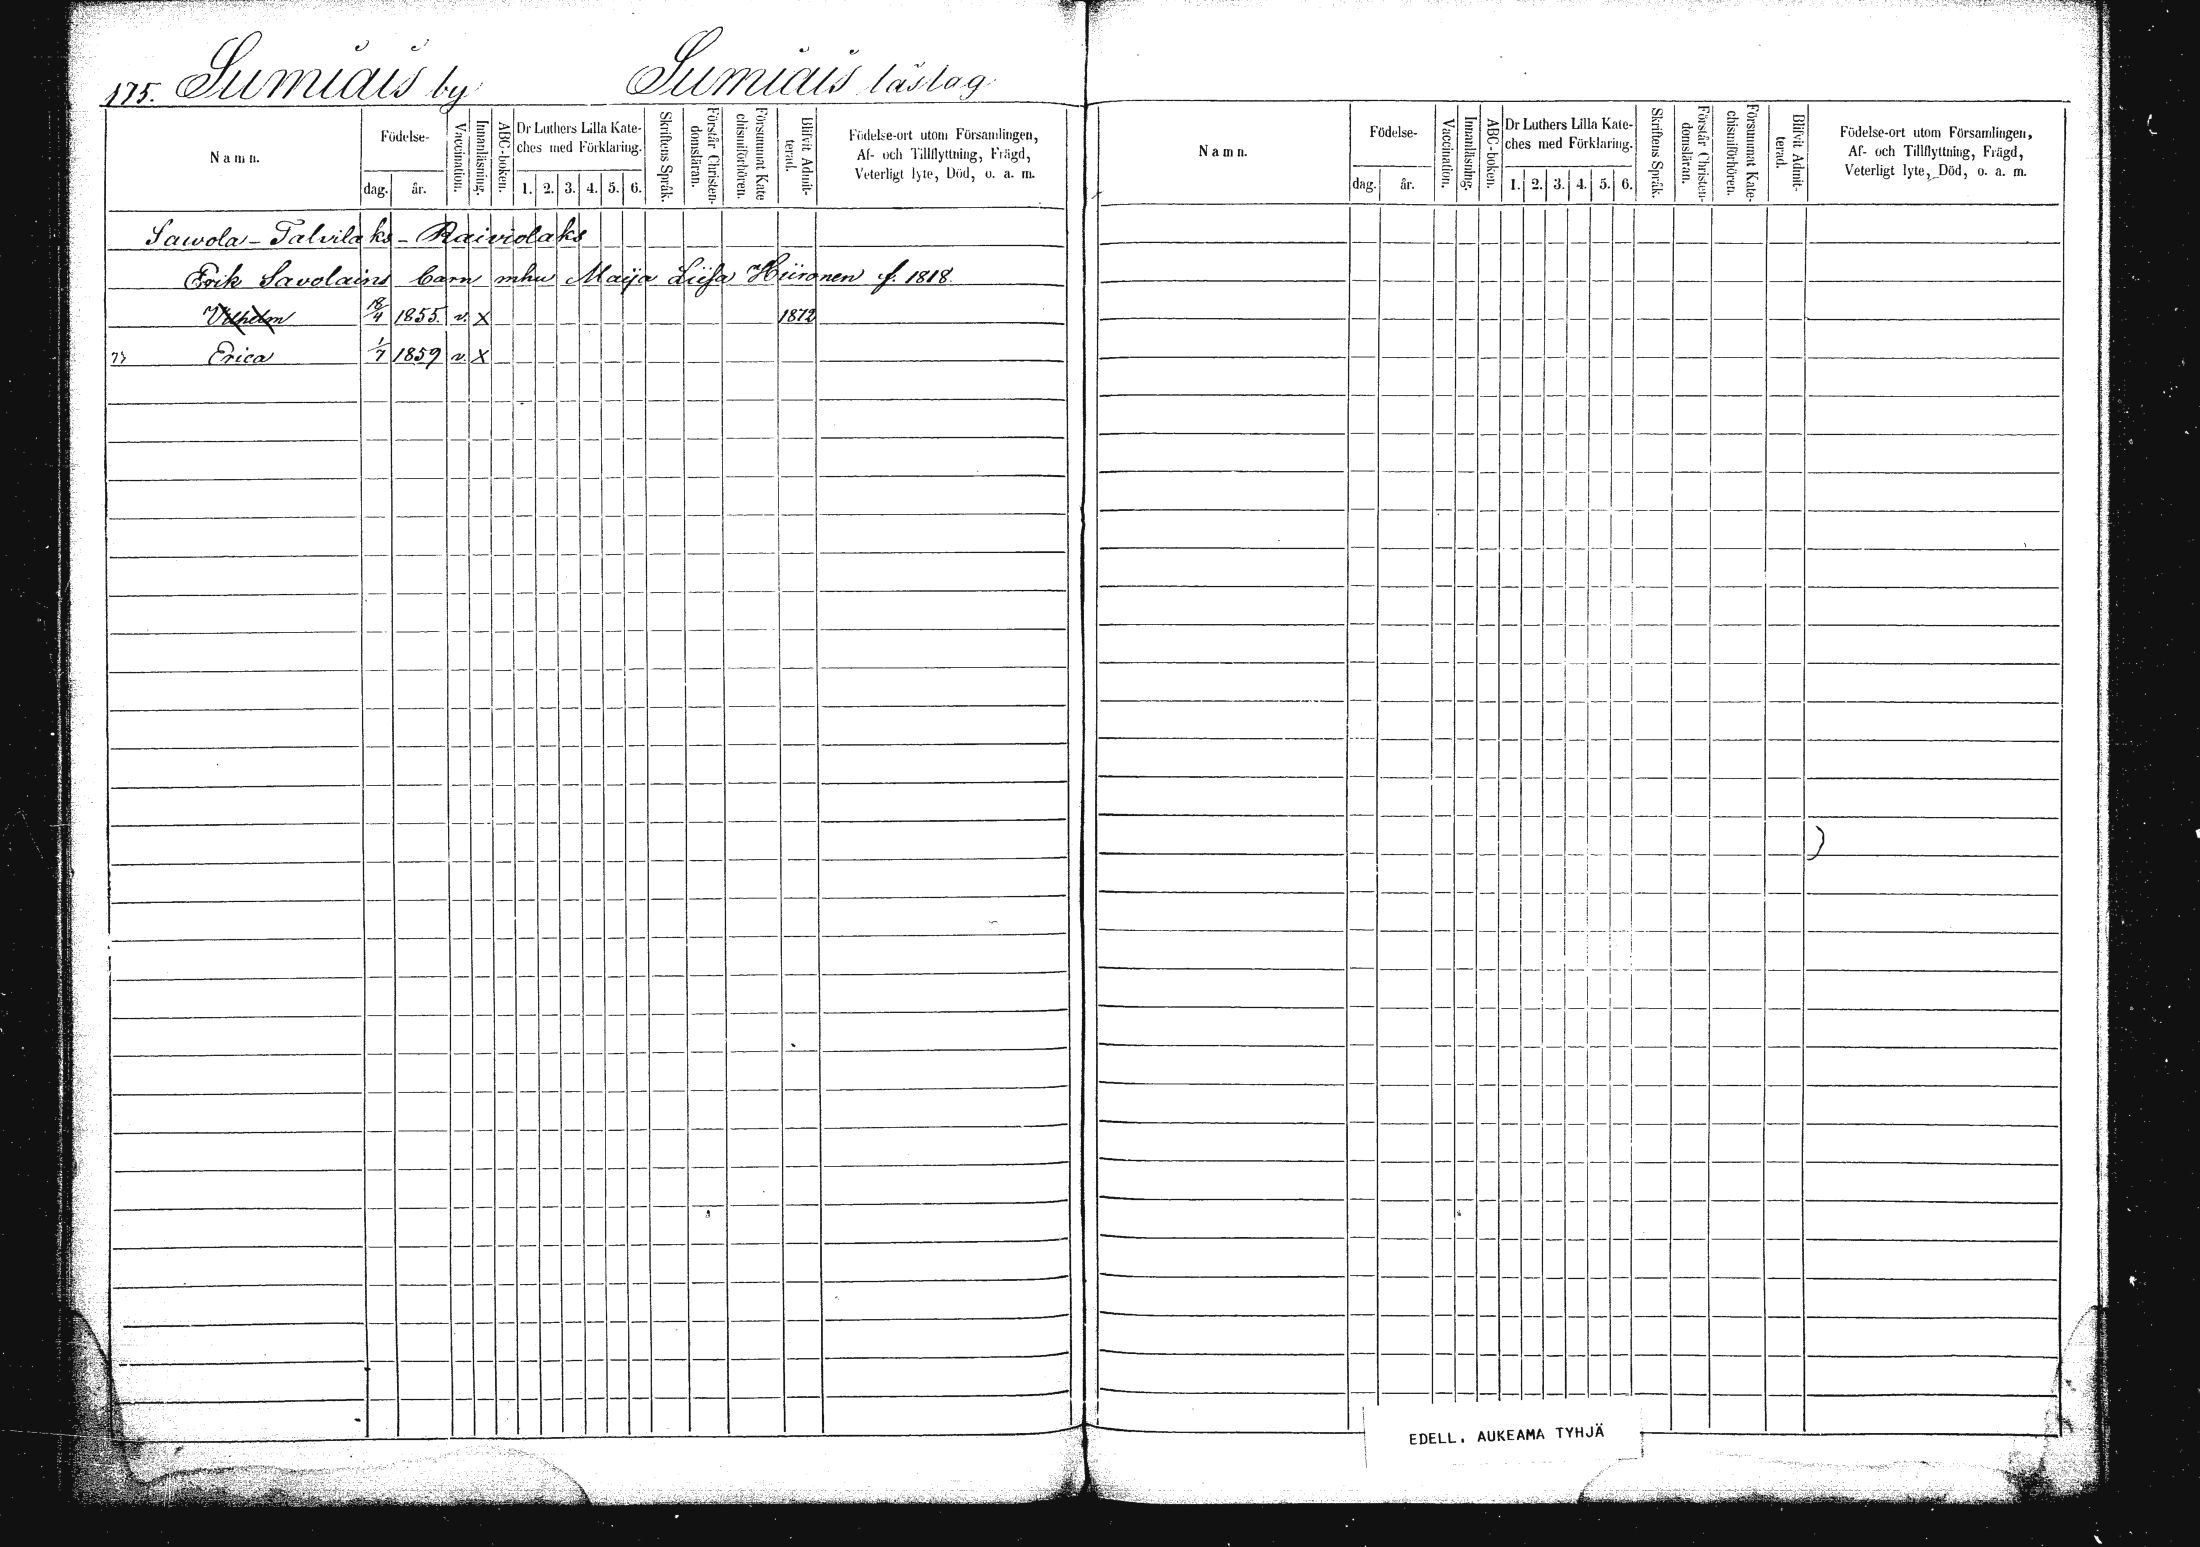 175. Sumiais by Sumiais läslag
Namn.
Födelse-
dag. år.
Vaccination.
Innanläsning.
ABC-boken.
Dr Luthers Lilla Kate-
ches med Förklaring.
1. 2. 3. 4. 5. 6.
Skriftens Språk.
Förstår Christen-
domsläran.
Försummat Kate
chismiförhören.
Blifvit Admit-
terad.
Födelse-ort utom Församlingen,
Af- och Tillflyttning, Frägd,
Veterligt lyte, Död, o. a. m.
Sawola - Talvilaks - Raiviolaks
Erik Savolains barn mhu Maija Liisa Hiironen f. 1818.
Vilhelm 18/4 1855. v. X 1872
73 Erica 1/7 1859 v. X
Namn.
Födelse-
dag. år.
Vaccination.
Innanläsning.
ABC-boken.
Dr Luthers Lilla Kate-
ches med Förklaring.
1. 2. 3. 4. 5. 6.
Skriftens Språk.
Förstår Christen-
domsläran.
Försummat Kate-
chismiförhören.
Blifvit Admit-
terad.
Födelse-ort utom Församlingen,
Af- och Tillflyttning, Frägd,
Veterligt lyte, Död, o. a. m.
EDELL. AUKEAMA TYHJÄ